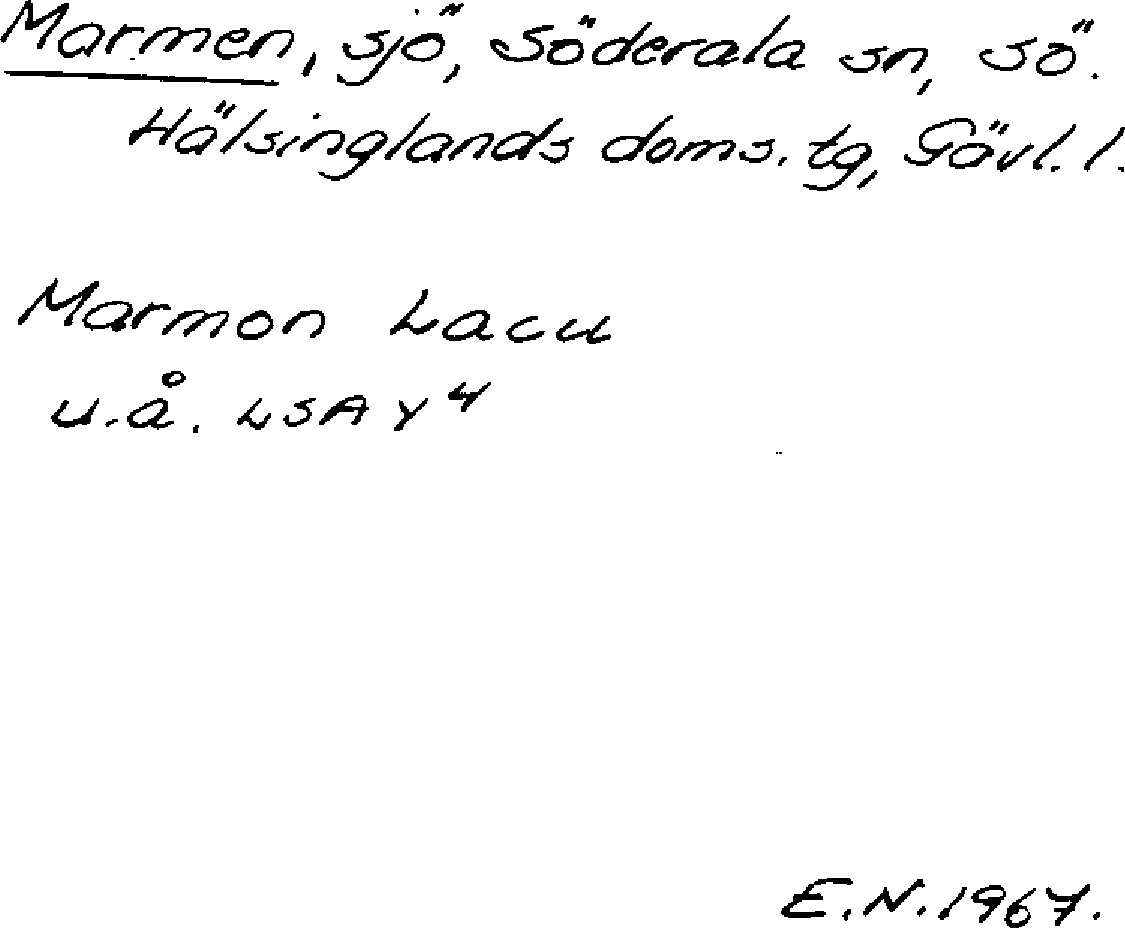 Marmen, sjö, Söderala sn, sö.
Hälsinglands doms. tg, Gävl. l.
Marmon Lacu
u.å. LSA Y 4
E.N. 1967.